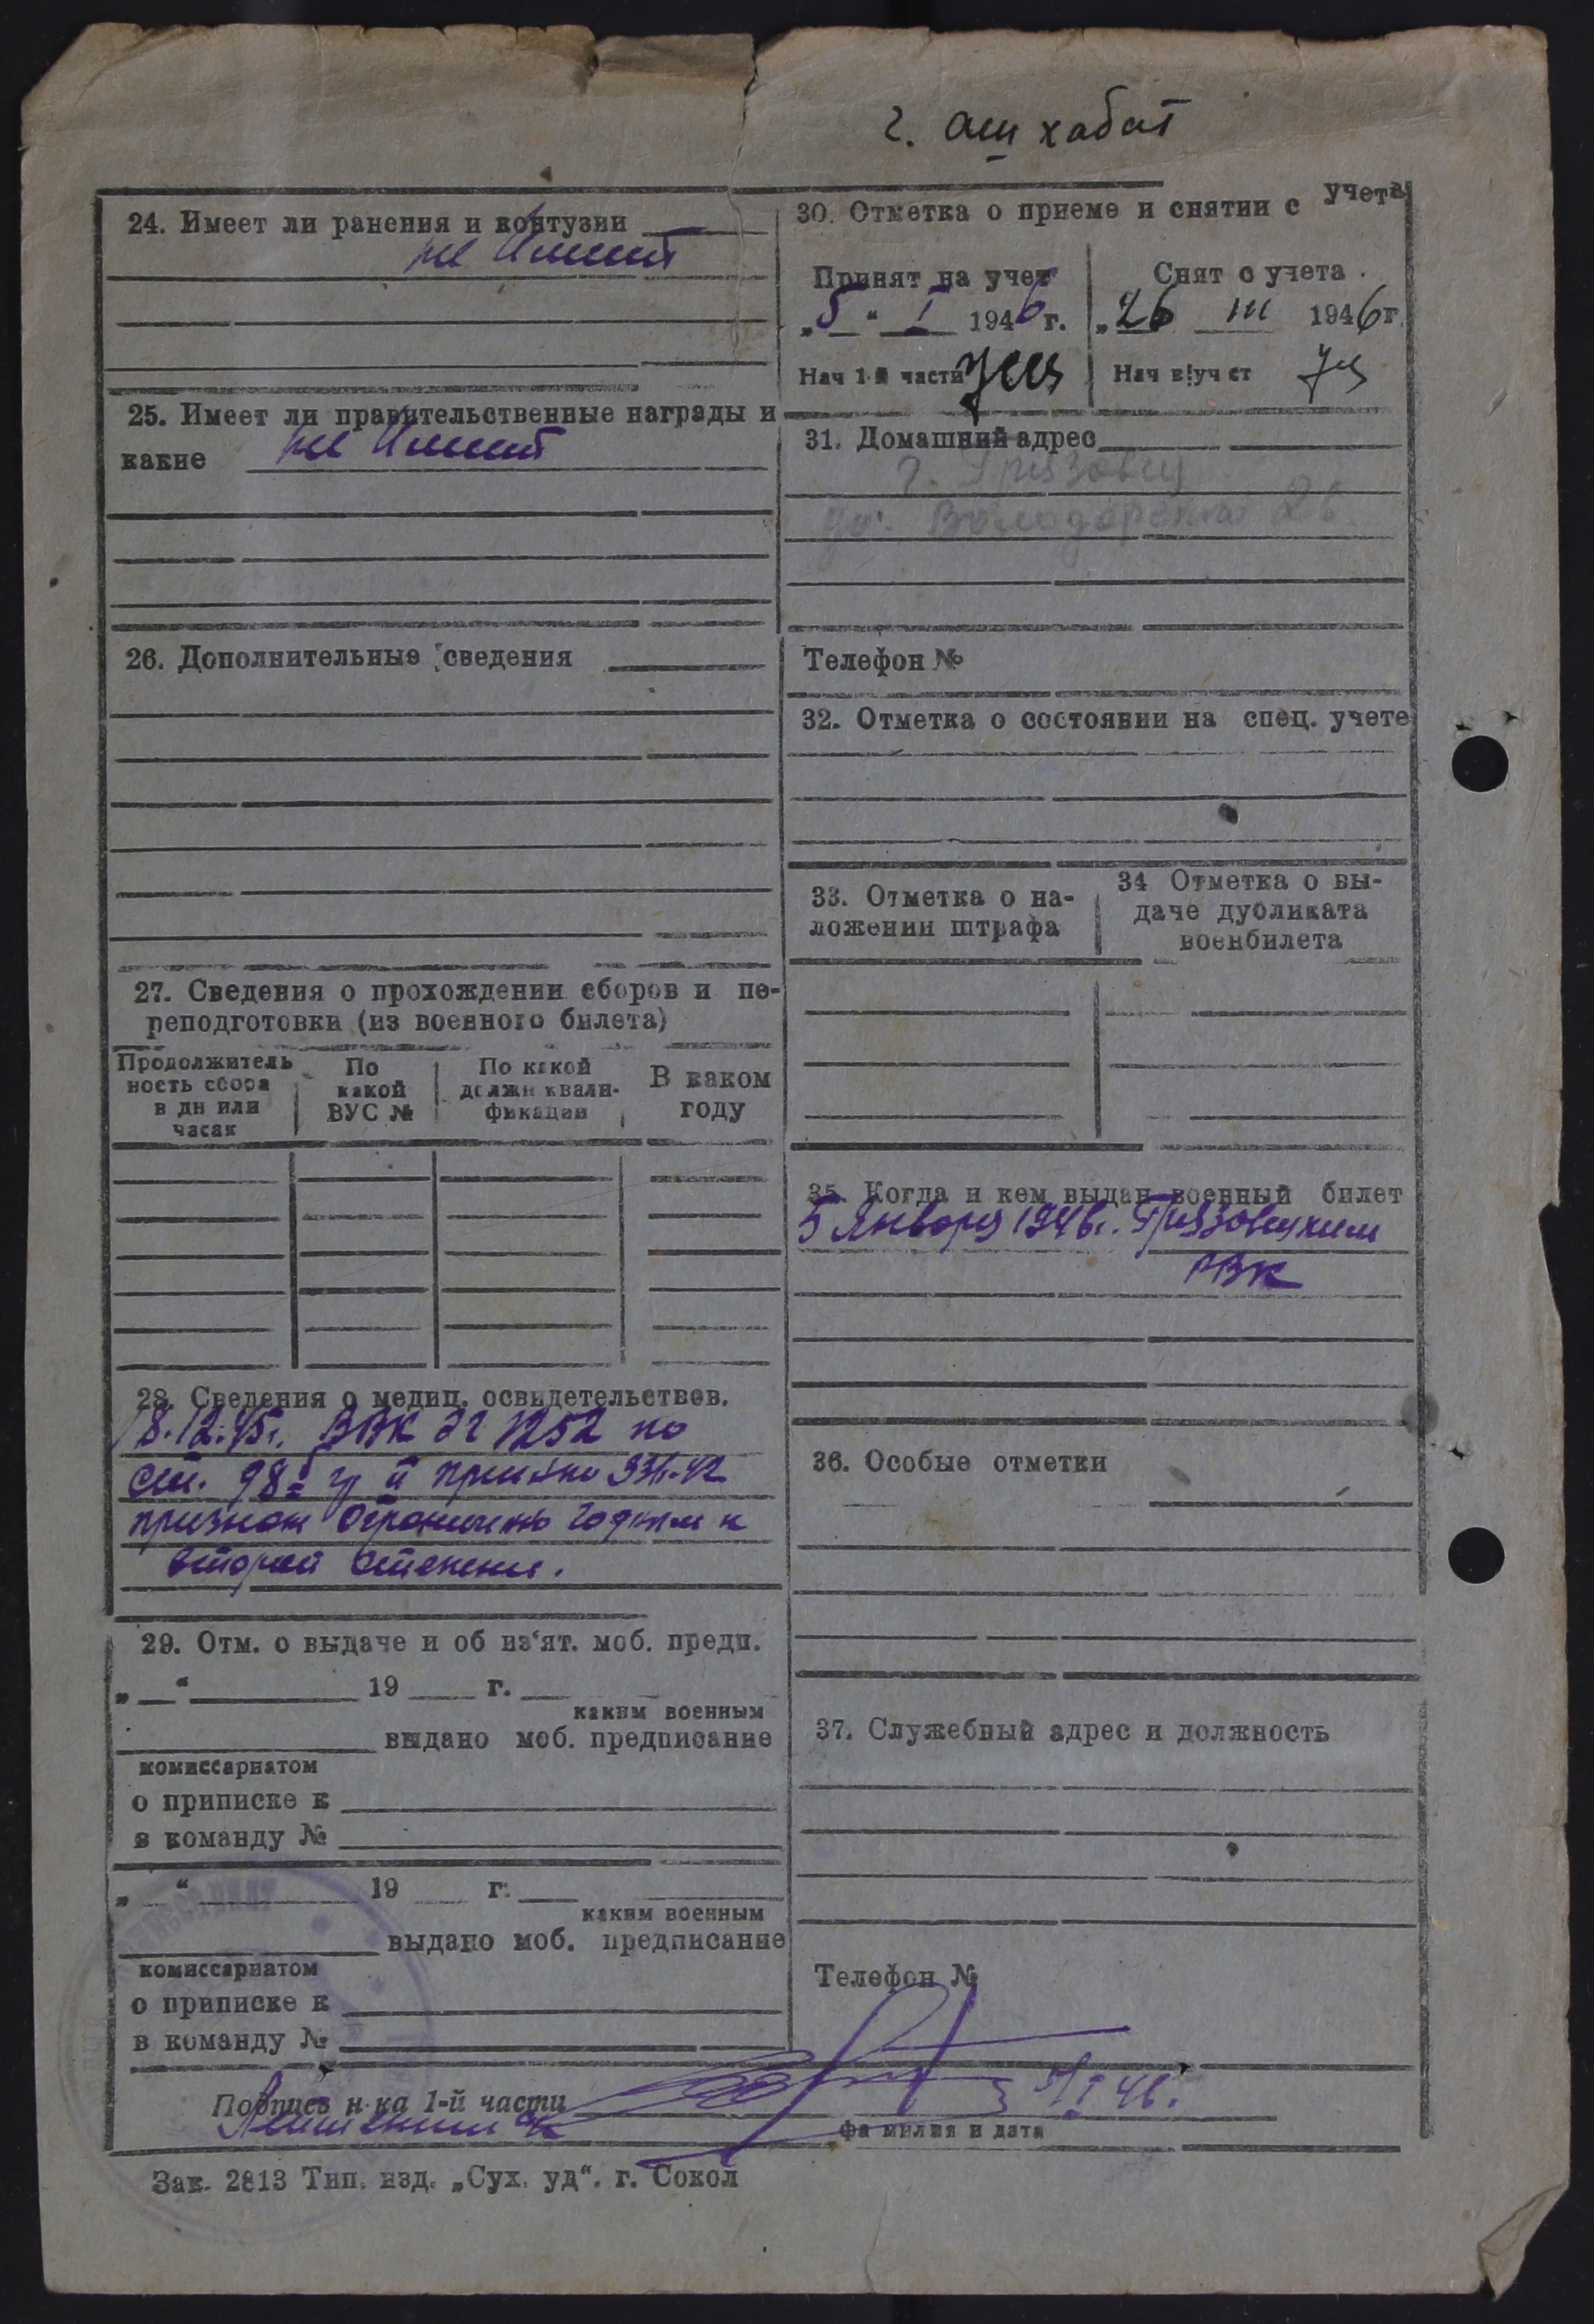 г. Ашхабат
24. Имеет ли ранения и контузии
не имеет
25. Имеет ли правительственные награды и
какие не имеет
26. Дополнительные сведения
27. Сведения о прохождении сборов и пе-
реподготовки (из военного билета)
Продолжитель
ность сбора
в дн или
часах
По
какой
ВУС №
По какой
должн квали-
фикации
В каком
году
28. Сведения о медиц. освидетельствов.
18.12.45г. ВВК ЭГ 1252 по
ст. 98 гр II
признан ограниченно годным к
второй степени.
29. Отм. о выдаче и об из'ят. моб. предп.
„ “ 19 г.
каким военным
выдано моб. предписание
комиссариатом
о приписке к
в команду №
„ “ 19 г.
каким военным
выдано моб. предписание
комиссариатом
о приписке к
в команду №
30. Отметка о приеме и снятии с учета
Принят на учет
„5“ I 1946 г.
Нач 1-й части
Снят с учета
„26 III 1946г.
Нач
31. Домашний адрес
г. Грязовец
ул. Володарского 26
Телефон №
32. Отметка о состоянии на спец. учете
33. Отметка о на-
ложении штрафа
34 Отметка о вы-
даче дубликата
военбилета
35. Когда и кем выдан военный билет
5 Января 1946г. Грязовецким
РВК
36. Особые отметки
37. Служебный адрес и должность
Телефон №
Подпись н-ка 1-й части
5/I 46.
фамилия и дата
Зак. 2813 Тип. изд. „Сух. уд“. г. Сокол